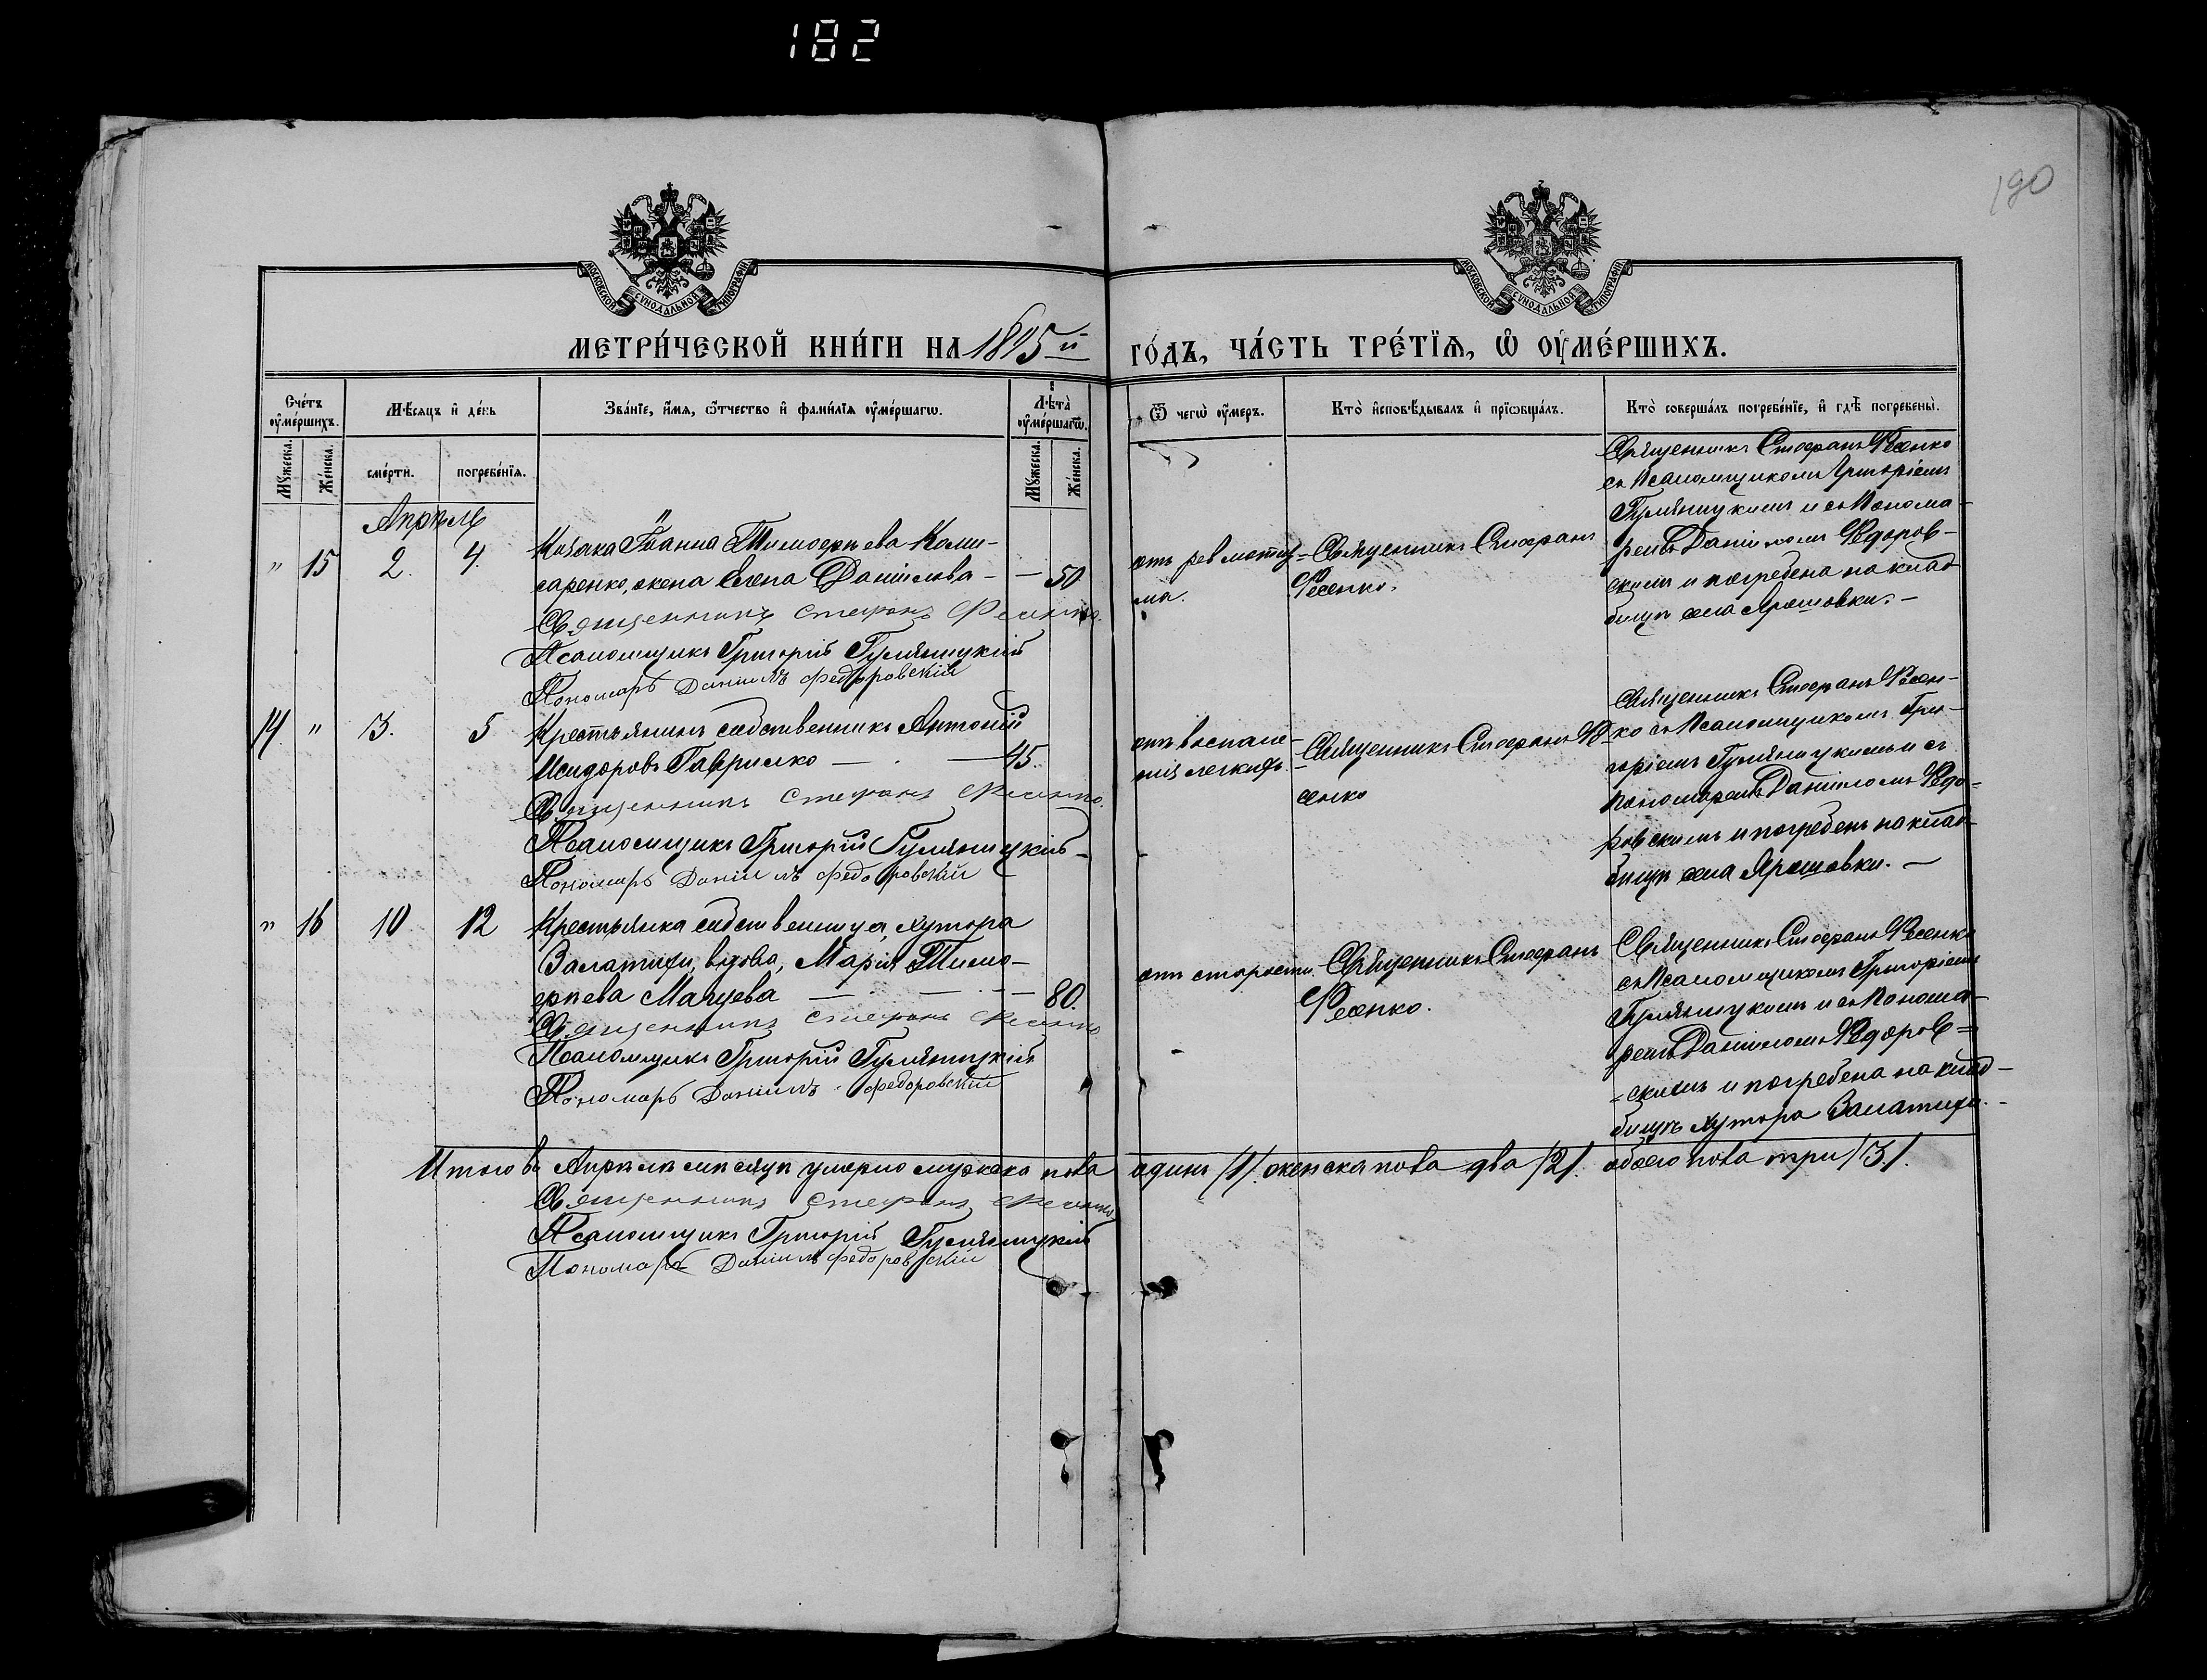 182
190
МОСКОВСКОЙ СѴНОДАЛЬНОЙ ТИПОГРАФІИ
МОСКОВСКОЙ СѴНОДАЛЬНОЙ ТИПОГРАФІИ
МЕТРИ́ЧЕСКОЙ КНИ́ГИ НА 1895й
ГО́ДЪ, ЧА́СТЬ ТРЕ́ТІѦ, Ѡ ОУМЕ́РШИХЪ.
Сче́тъ оумéршихъ.
Мѣ́сяцъ и де́нь
Зва́нїе, и́мя, ѻ́тчество и фами́лїя оумéршагѡ.
Лѣ́та оумéршагѡ.
Ѿ чегѡ̀ оу́меръ.
Кто̀ исповѣ́дывалъ и прїѡбща́лъ.
Кто̀ соверша́лъ погребе́нїе, и гдѣ̀ погребены̀.
Му́жеска.
Же́нска.
сме́рти.
погребе́нїя.
Му́жеска.
Же́нска.
Апрѣль
" 15 2. 4.
Козака Іоанна Тимоѳеева Коми-
саренко, жена Елена Даніилова — — 50
Священникъ Стефанъ Фесенко.
Псаломщикъ Григорій Гуляницкій
Пономарь Даніилъ Федоровскій
отъ ревматиз-
ма.
Священникъ Стефанъ
Фесенко.
Священникъ Стефанъ Фесенко
съ Псаломщикомъ Григоріемъ
Гуляницкимъ и съ Понома-
ремъ Даніиломъ Федоров-
скимъ и погребена на клад-
бищѣ села Ярошовки. —
14. " 3. 5
Крестьянинъ собственникъ Антоній
Исидоровъ Гаврилко — . — 45.
Священникъ Стефанъ Фесенко.
Псаломщикъ Григорій Гуляницкій
Пономарь Даніилъ Федоровскій
отъ воспале-
нія легкихъ.
Священникъ Стефанъ Фе-
сенко
Священникъ Стефанъ Фесен-
ко съ Псаломщикомъ Гри-
горіемъ Гуляницкимъ и съ
пономаремъ Даніиломъ Федо-
ровскимъ и погребенъ на клад-
бищѣ села Ярошовки. —
" 16 10 12
Крестьянка собственница, хутора
Залатихи, вдова, Марія Тимо-
ѳеева Мацуева — — — 80.
Священникъ Стефанъ Фесенко
Псаломщикъ Григорій Гуляницкій
Пономарь Даніилъ Федоровскій
отъ старости.
Священникъ Стефанъ
Фесенко.
Священникъ Стефанъ Фесенко
съ Псаломщикомъ Григоріемъ
Гуляницкимъ и съ Понома-
ремъ Даніиломъ Федоров-
скимъ и погребена на клад-
бищѣ хутора Залатихи. —
Итого въ Апрѣлѣ мѣсяцѣ умерло мужеска пола один /1/. женска пола два /2/. обоего пола три /3/.
Священникъ Стефанъ Фесенко
Псаломщикъ Григорій Гуляницкій
Пономарь Даніилъ Федоровскій